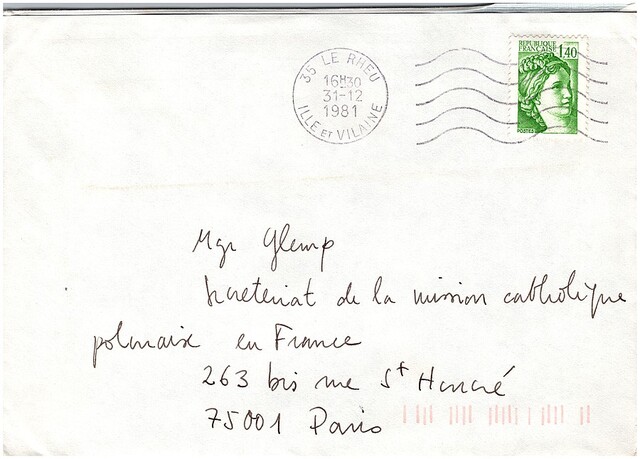 35 LE RHEU
16H30
31-12
1981
ILLE ET VILAINE
REPUBLIQUE
FRANÇAISE 1,40
POSTES
Mgr Glemp
Secretariat de la mission catholique
polonaise en France
263 bis rue St Honoré
75001 Paris